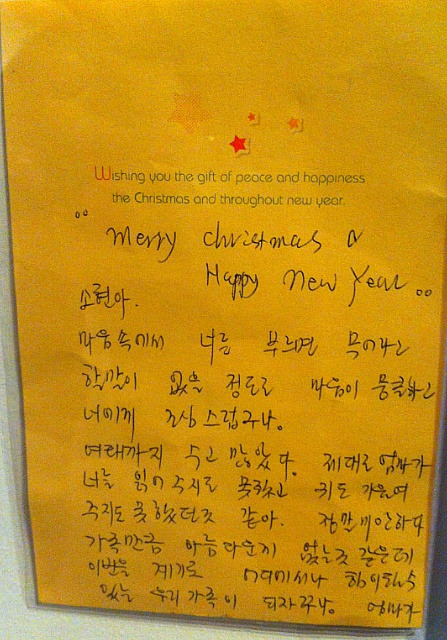 Wishing you the gift of peace and happiness
the Christmas and throughout new year.
Merry christmas &
Happy New Year
소현아.
마음속에서 너를 부르면
할말이 없을 정도로 마음이 뭉클하고
너에게 조심스럽구나.
여태까지 수고 많았다. 제대로 엄마가
너를 읽어주지도 못하고 귀도 기울여
주지도 못했던것 같아. 정말 미안하다
가족만큼 아름다운게 없는것 같은데
이번을 계기로 어디에서나
있는 우리 가족이 되자꾸나. 엄마가